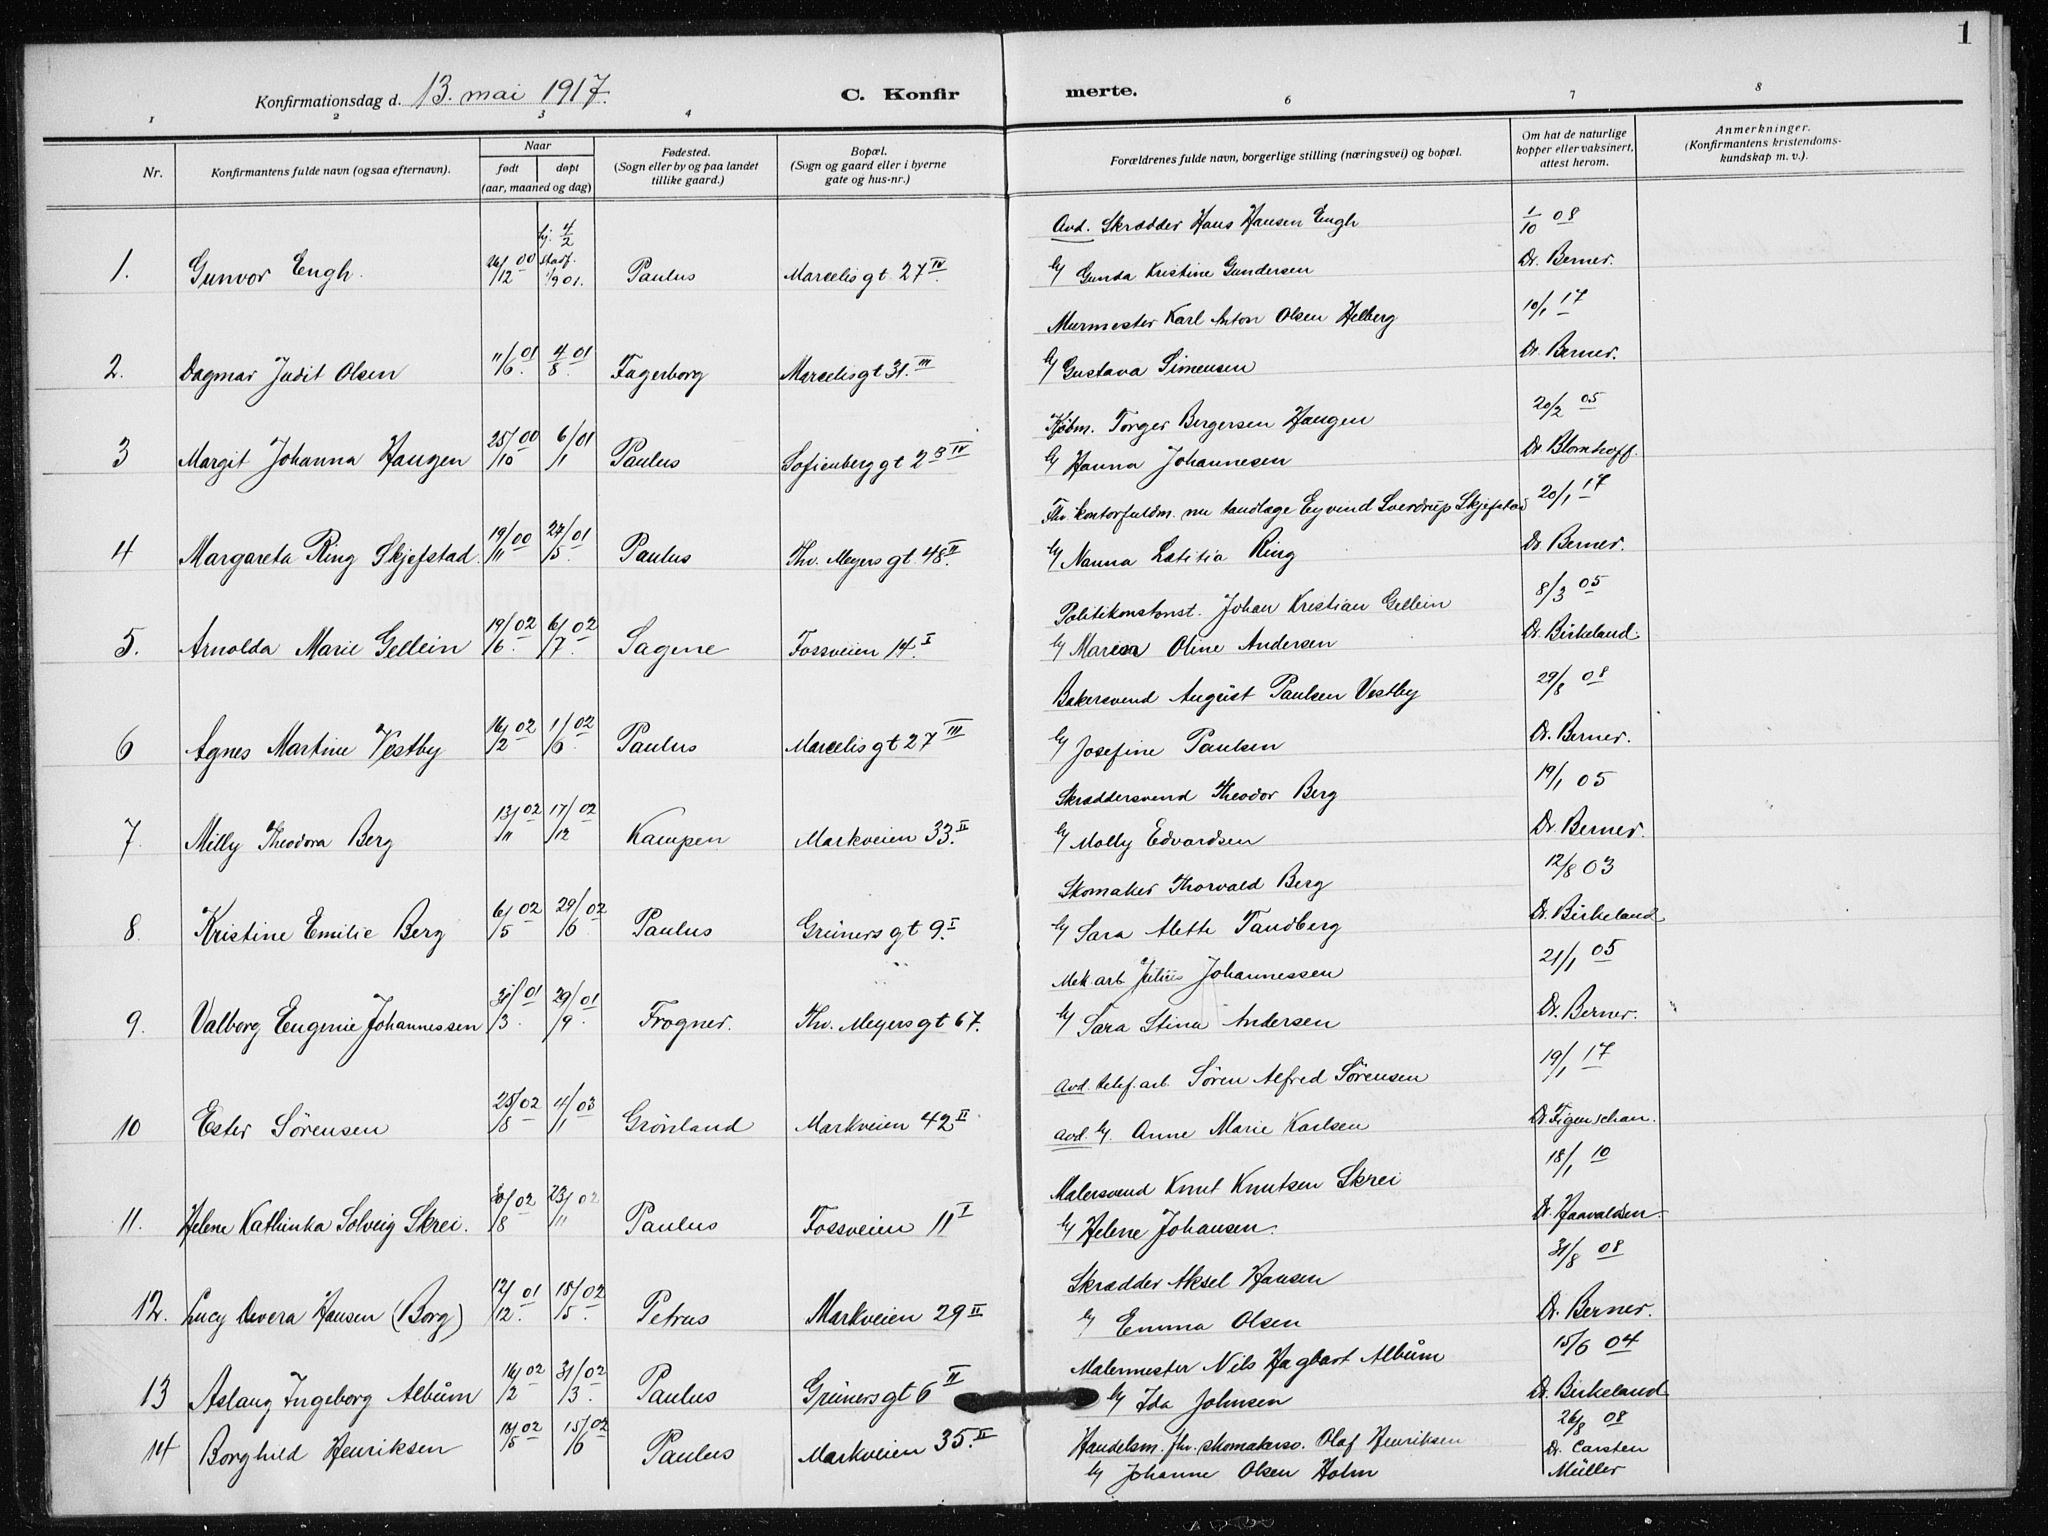 1
Konfirmationsdag d. 13. mai 1917. C. Konfir merte.
1 2 3 4 6 7 8
Nr. Konfirmantens fulde navn (ogsaa efternavn). Naar født døpt (aar, maaned og dag) Fødested. (Sogn eller by og paa landet tillike gaard.) Bopæl. (Sogn og gaard eller i byerne gate og hus-nr.) Forældrenes fulde navn, borgerlige stilling (næringsvei) og bopæl. Om hat de naturlige kopper eller vaksinert, attest herom. Anmerkninger. (Konfirmantens kristendoms- kundskap m. v.).
hj. 4/2 Avd. Skrædder Hans Hansen Engh 1/10 08
1. Gunvor Engh. 26/12 00 stadf. 1/9 01. Paulus Marcelisgt 27 IV. Gunda Kristine Gundersen Dr. Berner.
Murmester Karl Anton Olsen Helberg 10/1 17
2. Dagmar Judit Olsen 11/6 01 4/8 01 Fagerborg Marcelisgt 31. III Gustava Simensen Dr. Berner.
Kjøbm. Torger Bergersen Haugen 20/2 05
3 Margit Johanna Haugen 25/10 00 6/1 01 Paulus Sofienberggt 28 IV Hanna Johannesen Dr. Blomhoff.
Fhv. kontorfuldm. nu tandlæge Eyvind Sverdrup Skjefstad 20/1 17
4 Margareta Ring Skjefstad. 19/11 00 27/5 01 Paulus Thv. Meyersgt 48 II. Nanna Lætitia Ring Dr. Berner.
Politikonstonst. Johan Kristian Gellein 8/3 05
5. Arnolda Marie Gellein 19/6 02 6/7 02 Sagene Fossveien 14. I Oline Andersen Dr. Birkeland.
Bakersvend August Paulsen Vestby 29/8 08
6 Agnes Martine Vestby 16/2 02 1/6 02 Paulus Marcelisgt 27 III Josefine Paulsen Dr. Berner.
Skræddersvend Theodor Berg 19/1 05
7. Milly Theodora Berg 13/11 02 17/12 02 Kampen Markveien 33. II Molly Edvardsen Dr. Berner.
Skomaker Thorvald Berg 12/8 03
8. Kristine Emilie Berg 6/5 02 29/6 02 Paulus Grünersgt 9. I Sara Alette Tandberg Dr. Birkeland
Mek. arb. Julius Johannessen 21/1 05
9. Valborg Eugenie Johannessen 31/3 01 29/9 01 Frogner. Thv. Meyersgt 67. Sara Stina Andersen Dr. Berner.
Avd. telef. arb. Søren Alfred Sörensen 19/1 17
10 Ester Sörensen 25/8 02 4/1 03 Grönland Markveien 42 II avd. Anne Marie Karlsen Dr. Figenschau.
Malersvend Knut Knutsen Skrei 18/1 10
11. Helene Kathinka Solveig Skrei. 30/8 02 23/11 02 Paulus Fossveien 11 I Helene Johansen. Dr. Haavaldsen.
Skrædder Aksel Hansen 31/8 08
12. Lucy Hansen (Borg) 12/12 01 18/5 02 Petrus Markveien 29 II Emma Olsen Dr. Berner.
Malermester Nils Hagbart Albüm 15/6 04
13 Aslaug Ingeborg Albüm 16/2 02 31/3 02 Paulus Grünersgt 6 II Ida Johnsen Dr. Birkeland
Handelsm. fhv. skomakersv. Olaf Henriksen 26/8 08
14 Borghild Henriksen 18/5 02 15/6 02 Paulus Markveien 35. II Johanne Olsen Holm Dr. Carsten Müller